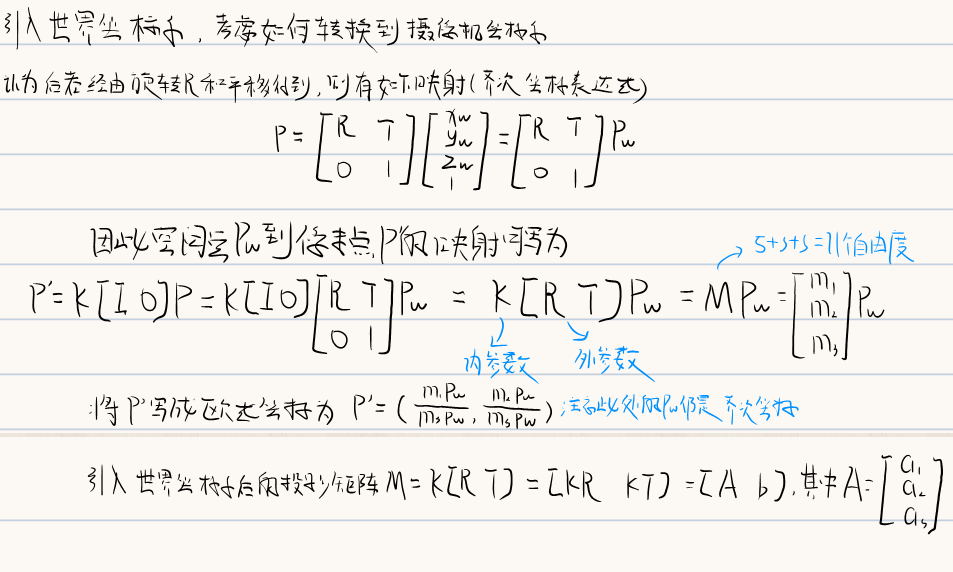 引入世界坐标系，考虑如何转换到摄像机坐标系
认为后者经由旋转R和平移得到，则有如下映射(齐次坐标表达式)
P = [R T; 0 1] [xw; yw; zw; 1] = [R T; 0 1] Pw
因此空间点Pw到像素点P'的映射可写为
5+3+3=11个自由度
P' = K[I 0]P = K[I 0] [R T; 0 1] Pw = K[R T]Pw = MPw = [m1; m2; m3] Pw
内参数 外参数
将P'写成欧式坐标为 P' = (m1Pw/m3Pw, m2Pw/m3Pw) 注意此处的Pw仍是齐次坐标
引入世界坐标系后的投影矩阵 M = K[R T] = [KR KT] = [A b], 其中 A = [a1; a2; a3]